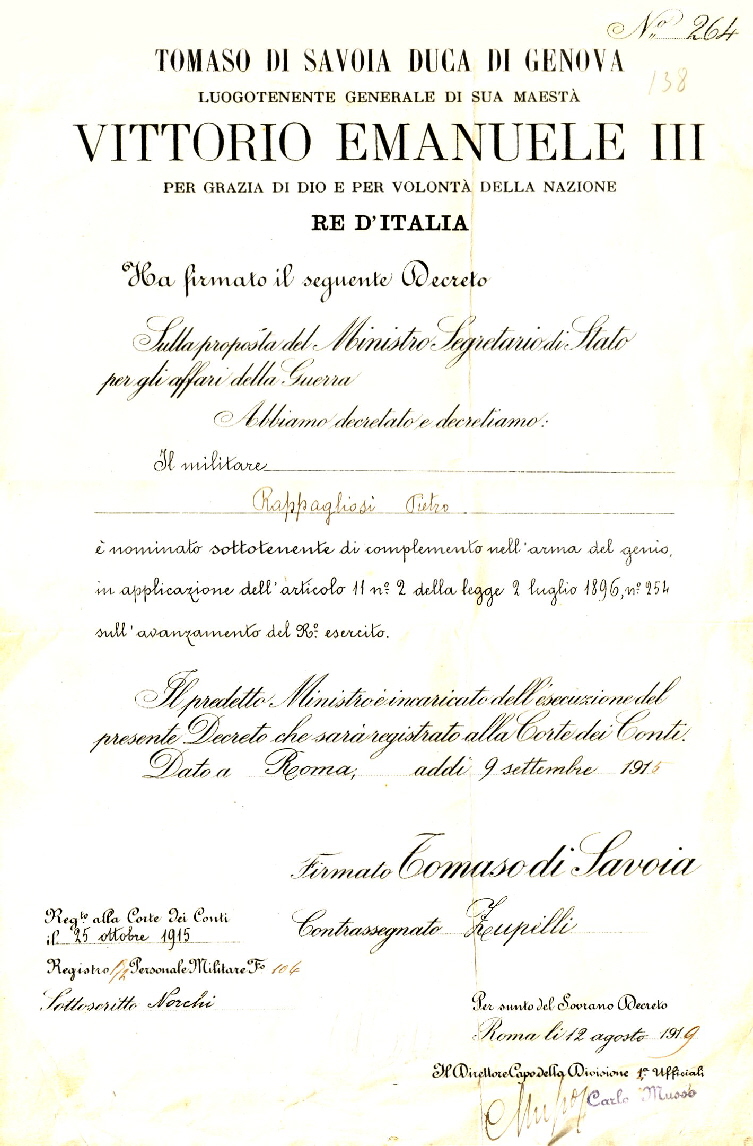 No. 264
TOMASO DI SAVOIA DUCA DI GENOVA
138
LUOGOTENENTE GENERALE DI SUA MAESTÀ
VITTORIO EMANUELE III
PER GRAZIA DI DIO E PER VOLONTÀ DELLA NAZIONE
RE D'ITALIA
Ha firmato il seguente Decreto
Sulla proposta del Ministro Segretario di Stato
per gli affari della Guerra
Abbiamo decretato e decretiamo:
Il militare
Rappagliosi Pietro
è nominato sottotenente di complemento nell'arma del genio,
in applicazione dell'articolo 11 nº 2 della legge 2 luglio 1896, nº 254
sull'avanzamento del Rº esercito.
Il predetto Ministro è incaricato dell'esecuzione del
presente Decreto che sarà registrato alla Corte dei Conti.
Dato a Roma, addì 9 settembre 1915
Firmato Tomaso di Savoia
Contrassegnato Zupelli
Regto alla Corte dei Conti
il 25 ottobre 1915
Registro Personale Militare Fº 106
Sottoscritto Norchi
Per sunto del Sovrano Decreto
Roma li 12 agosto 1919
Il Direttore Capo della Divisione 1ª Ufficiali
Carlo Musso